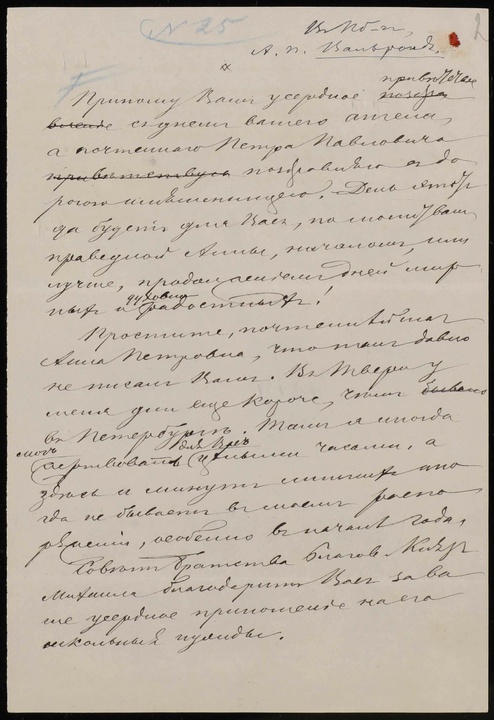 № 25
2
В Пб-г,
А. П. Вальронд.
Приношу Вамъ усердное привѣтствіе поздра
вленіе съ днемъ вашего ангела,
а почтеннаго Петра Павловича
привѣтствую поздравляю съ до
рогою имянинницею. День этотъ
да будетъ для Васъ, по молитвамъ
праведной Анны, началомъ, или
лучше, продолженіемъ дней мир
ныхъ и духовно радостныхъ!
Простите, почтеннѣйшая
Анна Петровна, что такъ давно
не писалъ Вамъ. Въ Твери у
меня дни еще короче, чѣмъ бывало
въ Петербургѣ. Тамъ я иногда
могъ жертвовать для Васъ цѣлыми часами, а
здѣсь и минутъ лишнихъ ино
гда не бываетъ въ моемъ распо
ряженіи, особенно въ началѣ года.
Совѣтъ Братства Благов. Князя
Михаила благодаритъ Васъ за ва
ше усердное приношеніе на его
школьныя нужды.